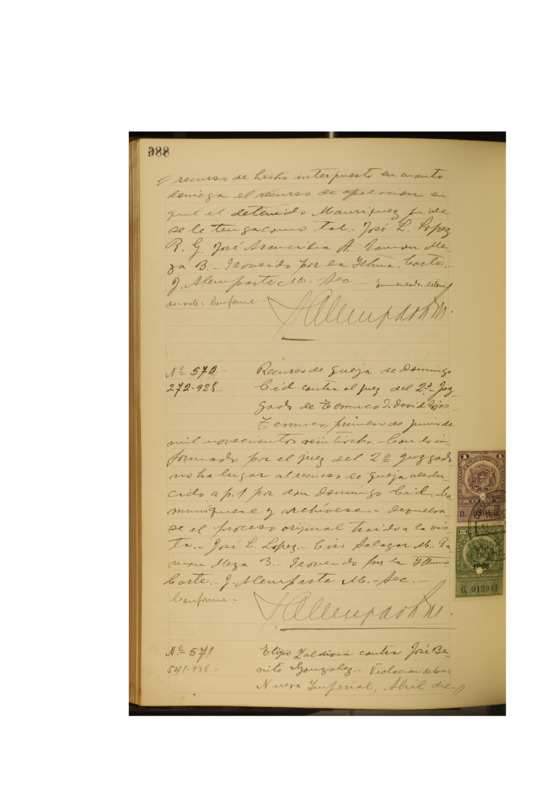 988
recurso de hecho interpuesto en cuanto
deniega el recurso de apelacion en
que el detenido Manriquez pide
se le tenga como tal.- José L. Lopez
R. G. José Aravena A. Ramon Me-
za B.- Proveido por la Iltma. Corte.-
J. Alemparte M.- Sec.-
Conforme.-
JAlemparte M.
Nº 570 Recurso de queja de Domingo
272-928. Cid contra el juez del 2º Juz-
gado de Temuco D. David Rojas
Temuco, primero de Junio de
mil novecientos veintiocho.- Con lo in-
formado por el juez del 2º Juzgado
no ha lugar al recurso de queja dedu-
cido a p. 1 por don Domingo Cid.- Co-
muniquese y archívese.- Devuélva-
se el proceso original traido a la vis-
ta.- José L. Lopez.- Ciro Salazar M. Ra-
mon Meza B.- Proveido por la Iltma
Corte.- J. Alemparte M.- Sec.-
Conforme.-
JAlemparte M.
Nº 571 contra José Be-
541-928.- nito Gonzalez.- Violacion de
Nueva Imperial, Abril die
G. 013941